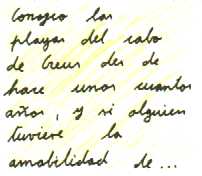 Conozco las
playas del cabo
de Creus des de
hace unos cuantos
años, y si alguien
tuviere la
amabilidad de...